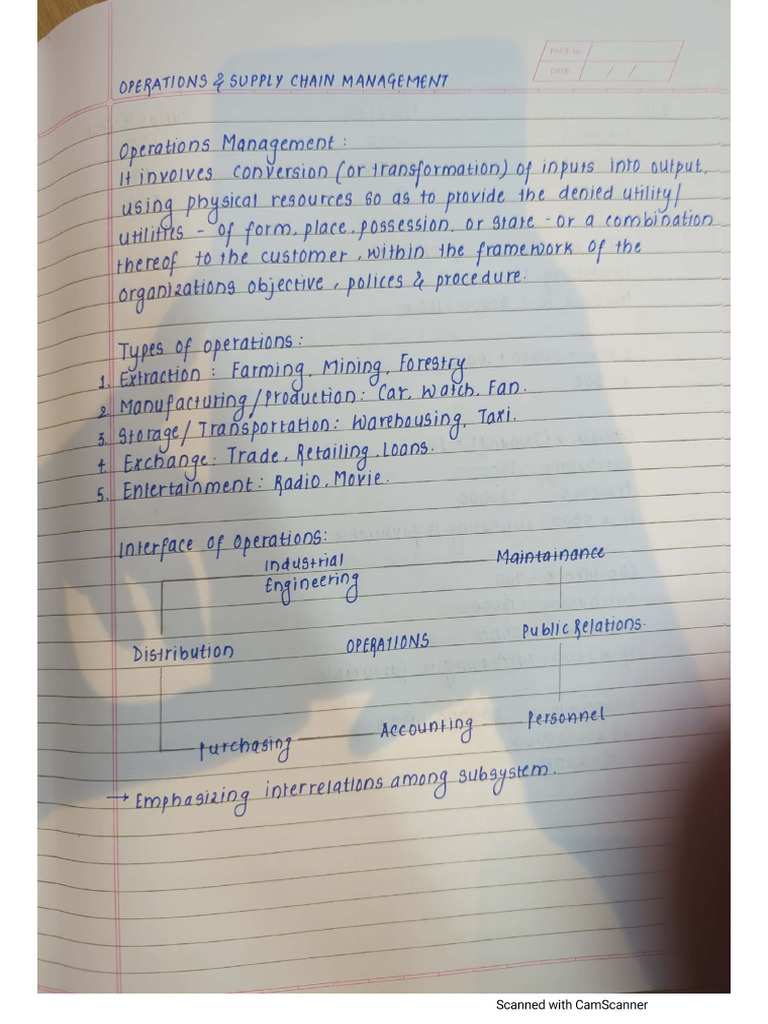 PAGE No.
DATE / /
OPERATIONS & SUPPLY CHAIN MANAGEMENT
Operations Management :
It involves conversion (or transformation) of inputs into output,
using physical resources so as to provide the denied utility/
utilities - of form, place, possession, or state - or a combination
thereof to the customer, within the framework of the
organizations objective, polices & procedure.
Types of operations :
1. Extraction : Farming, Mining, Forestry
2. Manufacturing/Production : Car, Watch, Fan.
3. Storage/ Transportation : Warehousing, Taxi.
4. Exchange : Trade, Retailing, Loans.
5. Entertainment : Radio, Movie.
Interface of operations :
Industrial Engineering
Maintainance
Distribution
OPERATIONS
Public Relations.
Purchasing
Accounting
Personnel
→ Emphasizing interrelations among subsystem.
Scanned with CamScanner